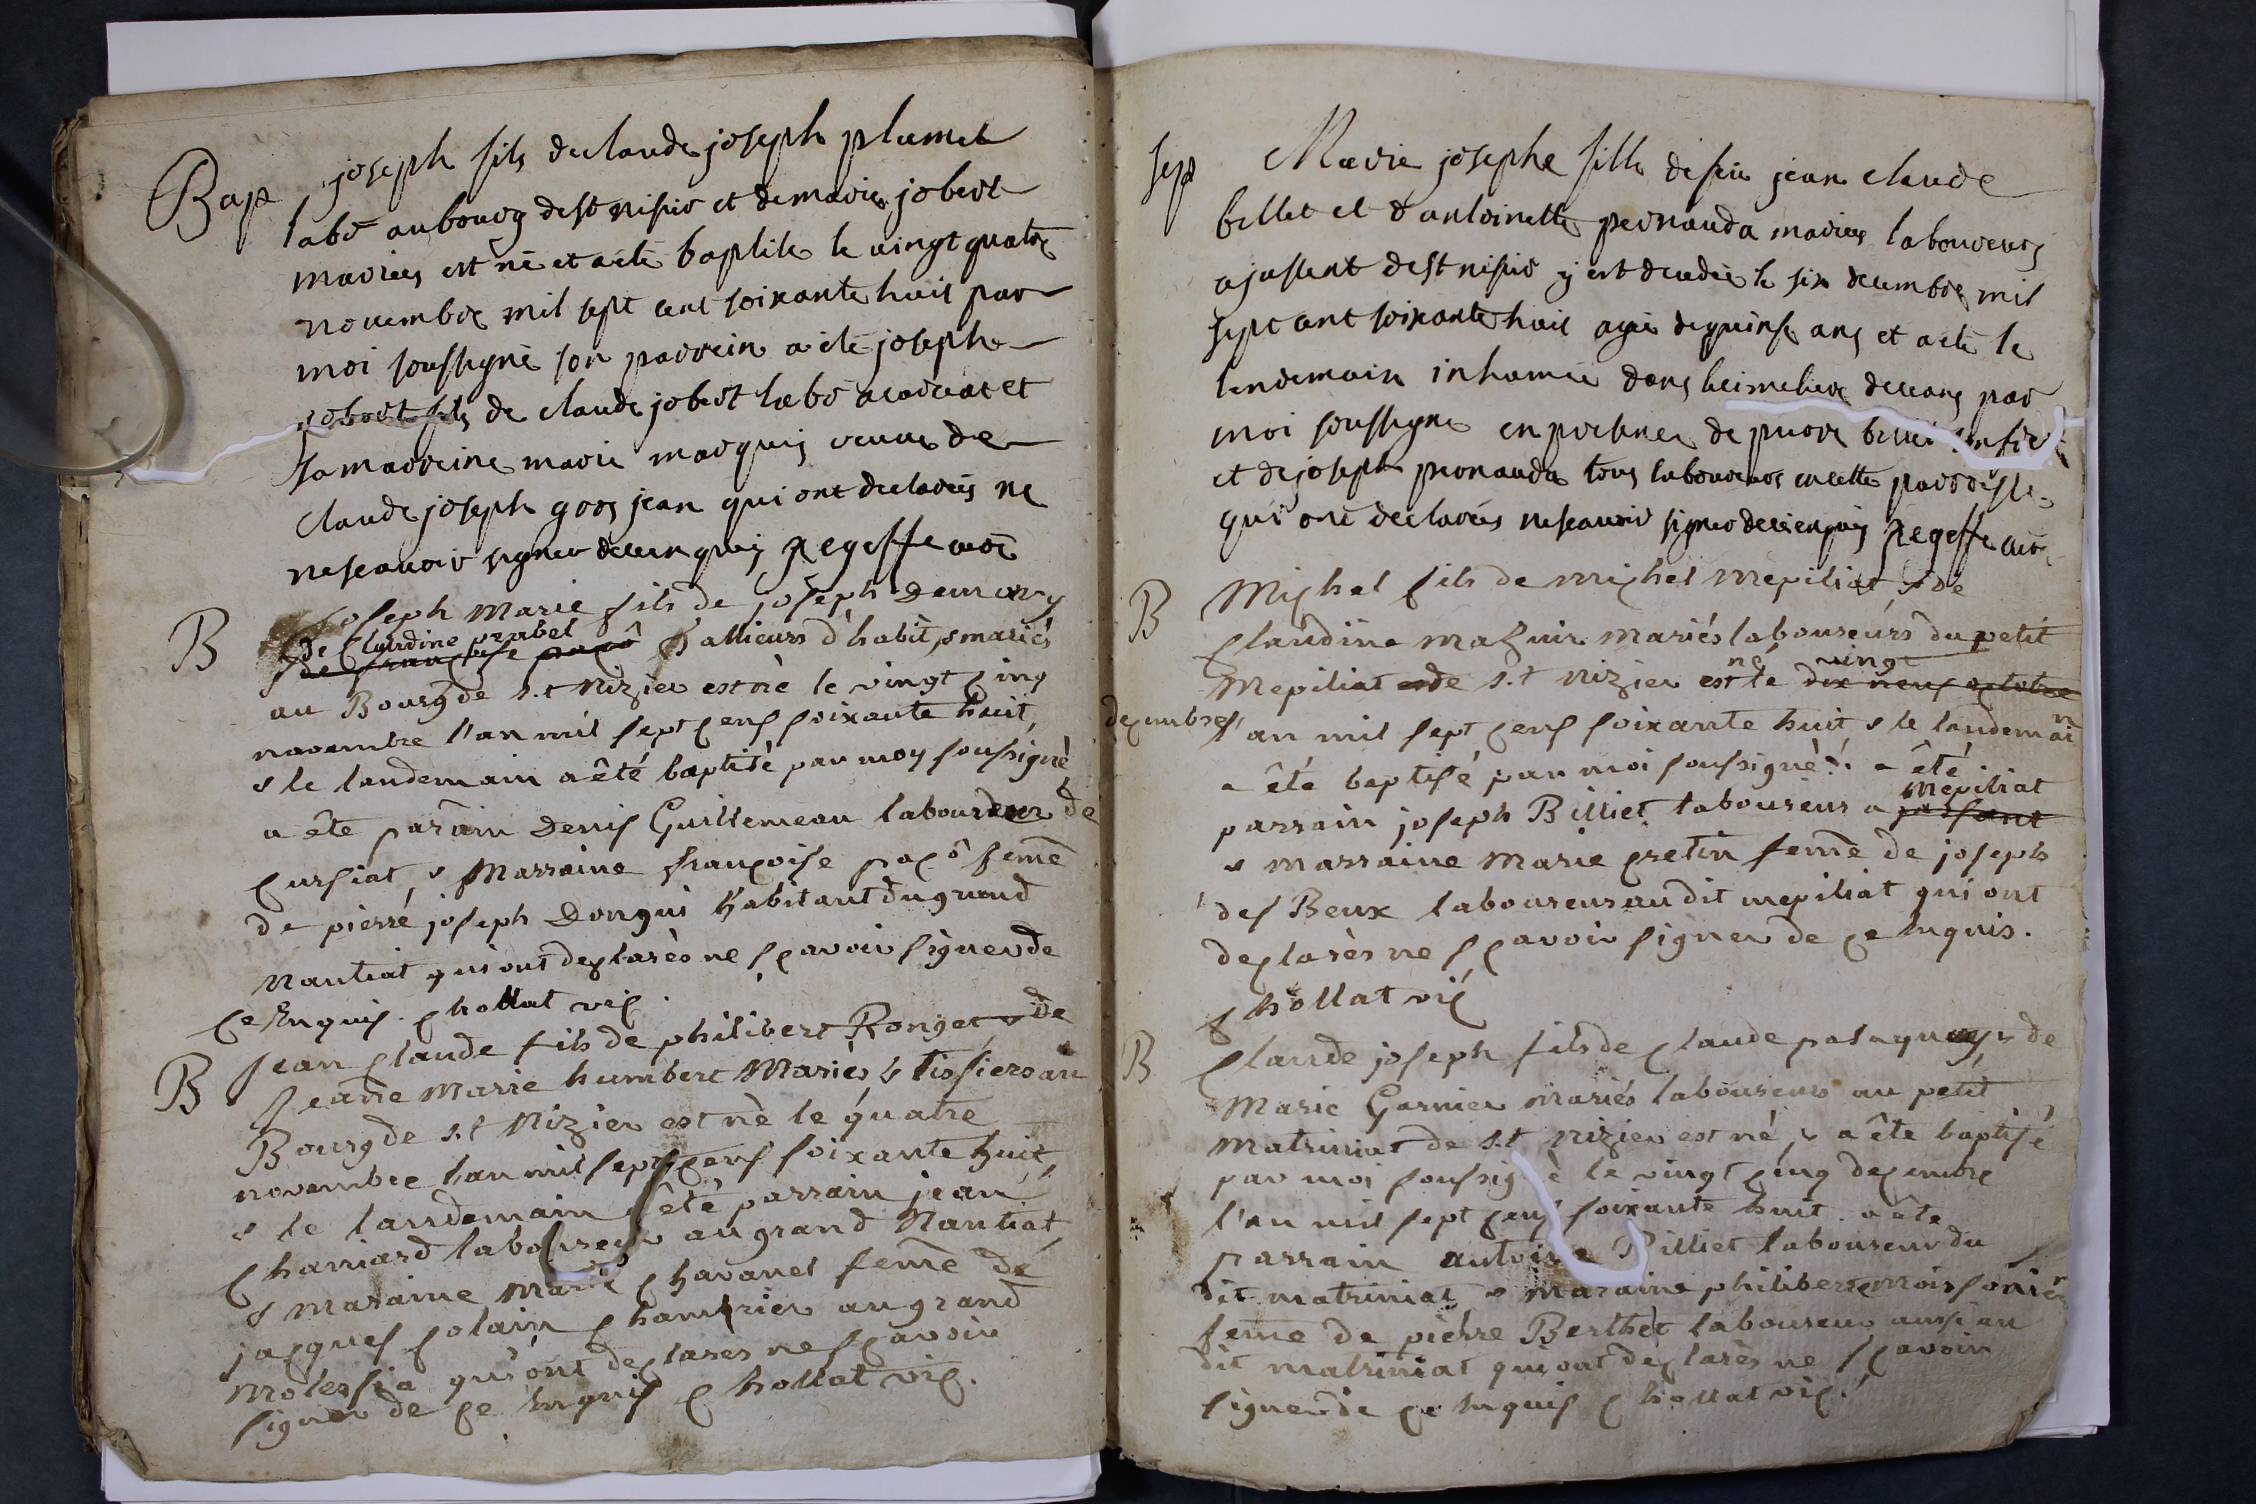 Bap joseph fils de claude joseph plumet
labr au bourg de st nisier et de marie jobert
mariés est né et a été baptisé le vingt quatre
novembre mil sept cent soixante huit par
moi soussigné son parrein a été joseph
jobert fils de claude jobert labr a et
sa marreine marie marquis veuve de
claude joseph gros jean qui ont declarés ne
ne scavoir signer de ce enquis regeffe vicr
B joseph Marie fils de joseph
de claudine prabel
& de françoise pacô tallieurs d'habits mariés
au Bourg de s.t Nizier est né le vingt çinq
novembre l'an mil sept çens soixante huit,
& le landemain a êté baptisé par moy soussigné
a ête parain Denis Guillemeau laboureur de
çursiat, & Marraine françoise paçô feme
de pierre joseph Donguis habitant du grand
Nantiat qui ont deçlarés ne sçavoir signer de
çe Enquis. çhollat viç.
B jean çlaude fils de philibert Ronget & de
jeane Marie humbert Mariés & tissiers au
Bourg de s.t Nizier est né le quatre
novembre l'an mil sept çens soixante huit,
& le landemain êté parrain jean
çhaniard laboureur au grand Nantiat,
& maraine Marie çhavanel feme de
jaçques çolain çhambrier au grand
Molessia qui ont deçlarés ne sçavoir
signer de çe Enquis çhollat viç.
sep Marie josephe fille de feu jean claude
billet et d'antoinette pernauda mariés laboureurs
a jassent de st nisier y est decedée le six decembre mil
sept cent soixante huit agée de quinse ans et a été le
lendemain inhumée dans le cimetiere de ceans par
moi soussigné en presence de piere
et de joseph pernauda tous laboureurs en cette parroisse
qui ont declarés ne scavoir signer de ce enquis regeffe vicr
B Miçhel fils de miçhel mepiliat, & de
çlaudine mazuir mariés laboureurs du petit
né vingt
Mepiliat de s.t Nizier est le dix neuf octobre
deçembre l'an mil sept çens soixante huit & le landemain
a êté baptisé par moi soussigné. a êté
mepiliat
parrain joseph Billiet laboureur a jassant
& marraine Marie çretin feme de joseph
des Beux laboureur au dit mepiliat qui ont
deçlarés ne sçavoir signer de çe Enquis.
çhollat viç
B çlaude joseph fils de çlaude & de
Marie Garnier mariés laboureurs au petit
Matriniat de s.t Nizier est né, & a ête baptisé
par moi soussigné le vingt çinq deçembre
l'an mil sept çens soixante huit. a ête
parrain antoine Billiet laboureur du
dit matriniat & maraine philiberte moissonier
feme de pierre Berthet laboureur aussi au
dit matriniat qui ont deçlarés ne sçavoir
signer de çe Enquis çhollat viç.